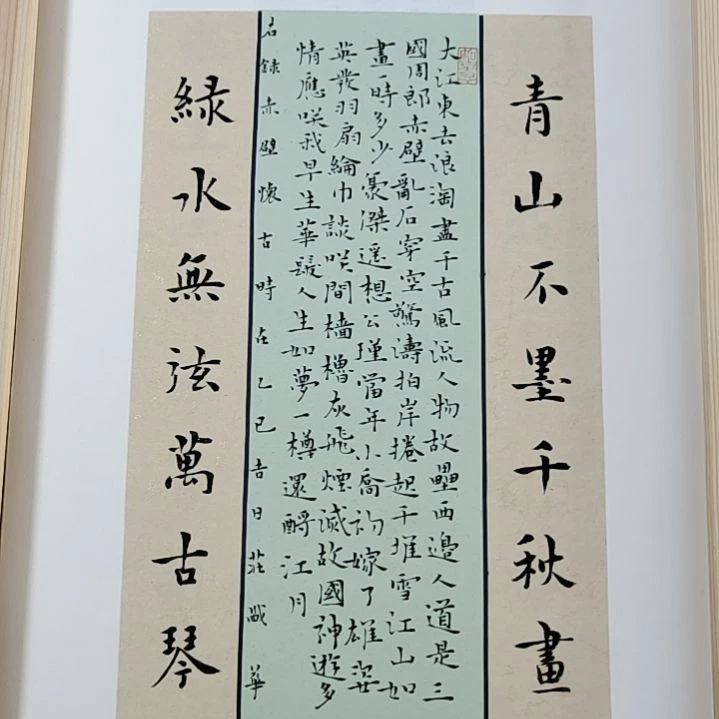 青山不墨千秋畫
大江東去浪淘盡千古風流人物故壘西邊人道是三
國周郎赤壁亂石穿空驚濤拍岸捲起千堆雪江山如
畫一時多少豪傑遥想公瑾當年小喬初嫁了雄姿
英發羽扇綸巾談咲間檣櫓灰飛煙滅故國神遊多
情應咲我早生華髮人生如夢一樽還酹江月
右錄赤壁懷古時在乙巳吉日莊 華
綠水無弦萬古琴